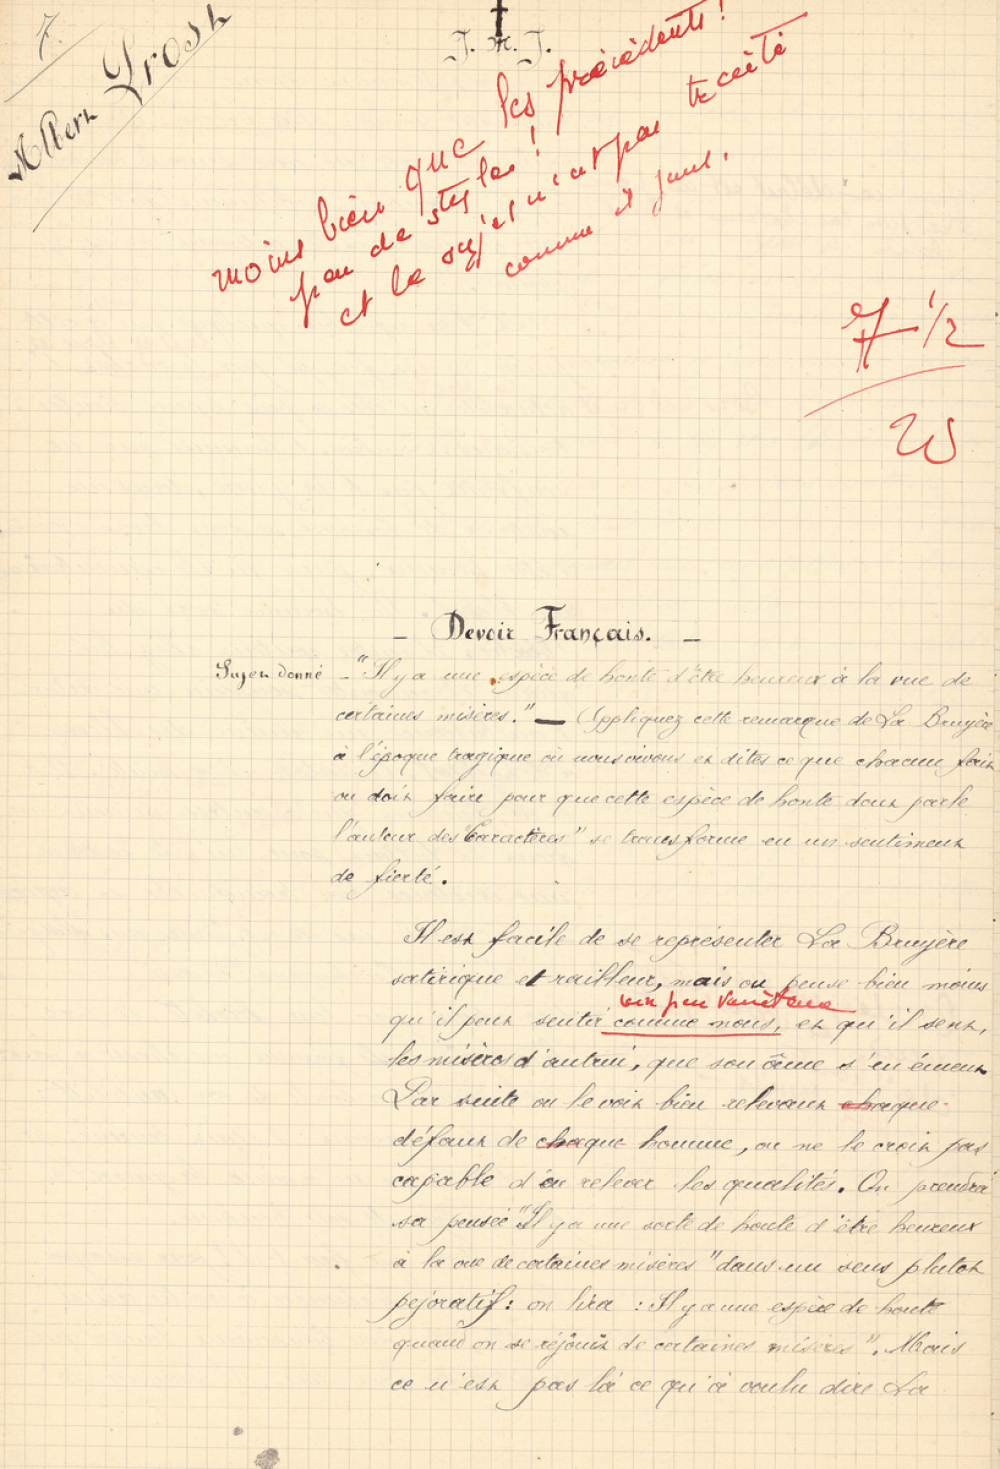 7.
Albert Grosh
J. M. J.
moins bien que les précédents !
peu de style !
et le sujet n'est pas traité
comme il faut.
7 1/2
20
- Devoir Français. -
Sujet donné - "Il y a une espèce de honte d'être heureux à la vue de
certaines misères." — (Appliquez cette remarque de La Bruyère
à l'époque tragique où nous vivons et dites ce que chacun fait
ou doit faire pour que cette espèce de honte dont parle
l'auteur des "Caractères" se transforme en un sentiment
de fierté.
Il est facile de se représenter La Bruyère
satirique et railleur, mais on pense bien moins
un peu
qu'il peut sentir comme nous, et qu'il sent,
les misères d'autrui, que son âme s'en émeut
Par suite on le voit bien relevant chaque
défaut de chaque homme, on ne le croit pas
capable d'en relever les qualités. On prendra
sa pensée "Il y a une sorte de honte d'être heureux
à la vue de certaines misères" dans un sens plutôt
péjoratif : on lira : Il y a une espèce de honte
quand on se réjouit de certaines misères". Mais
ce n'est pas là ce qu'a voulu dire La